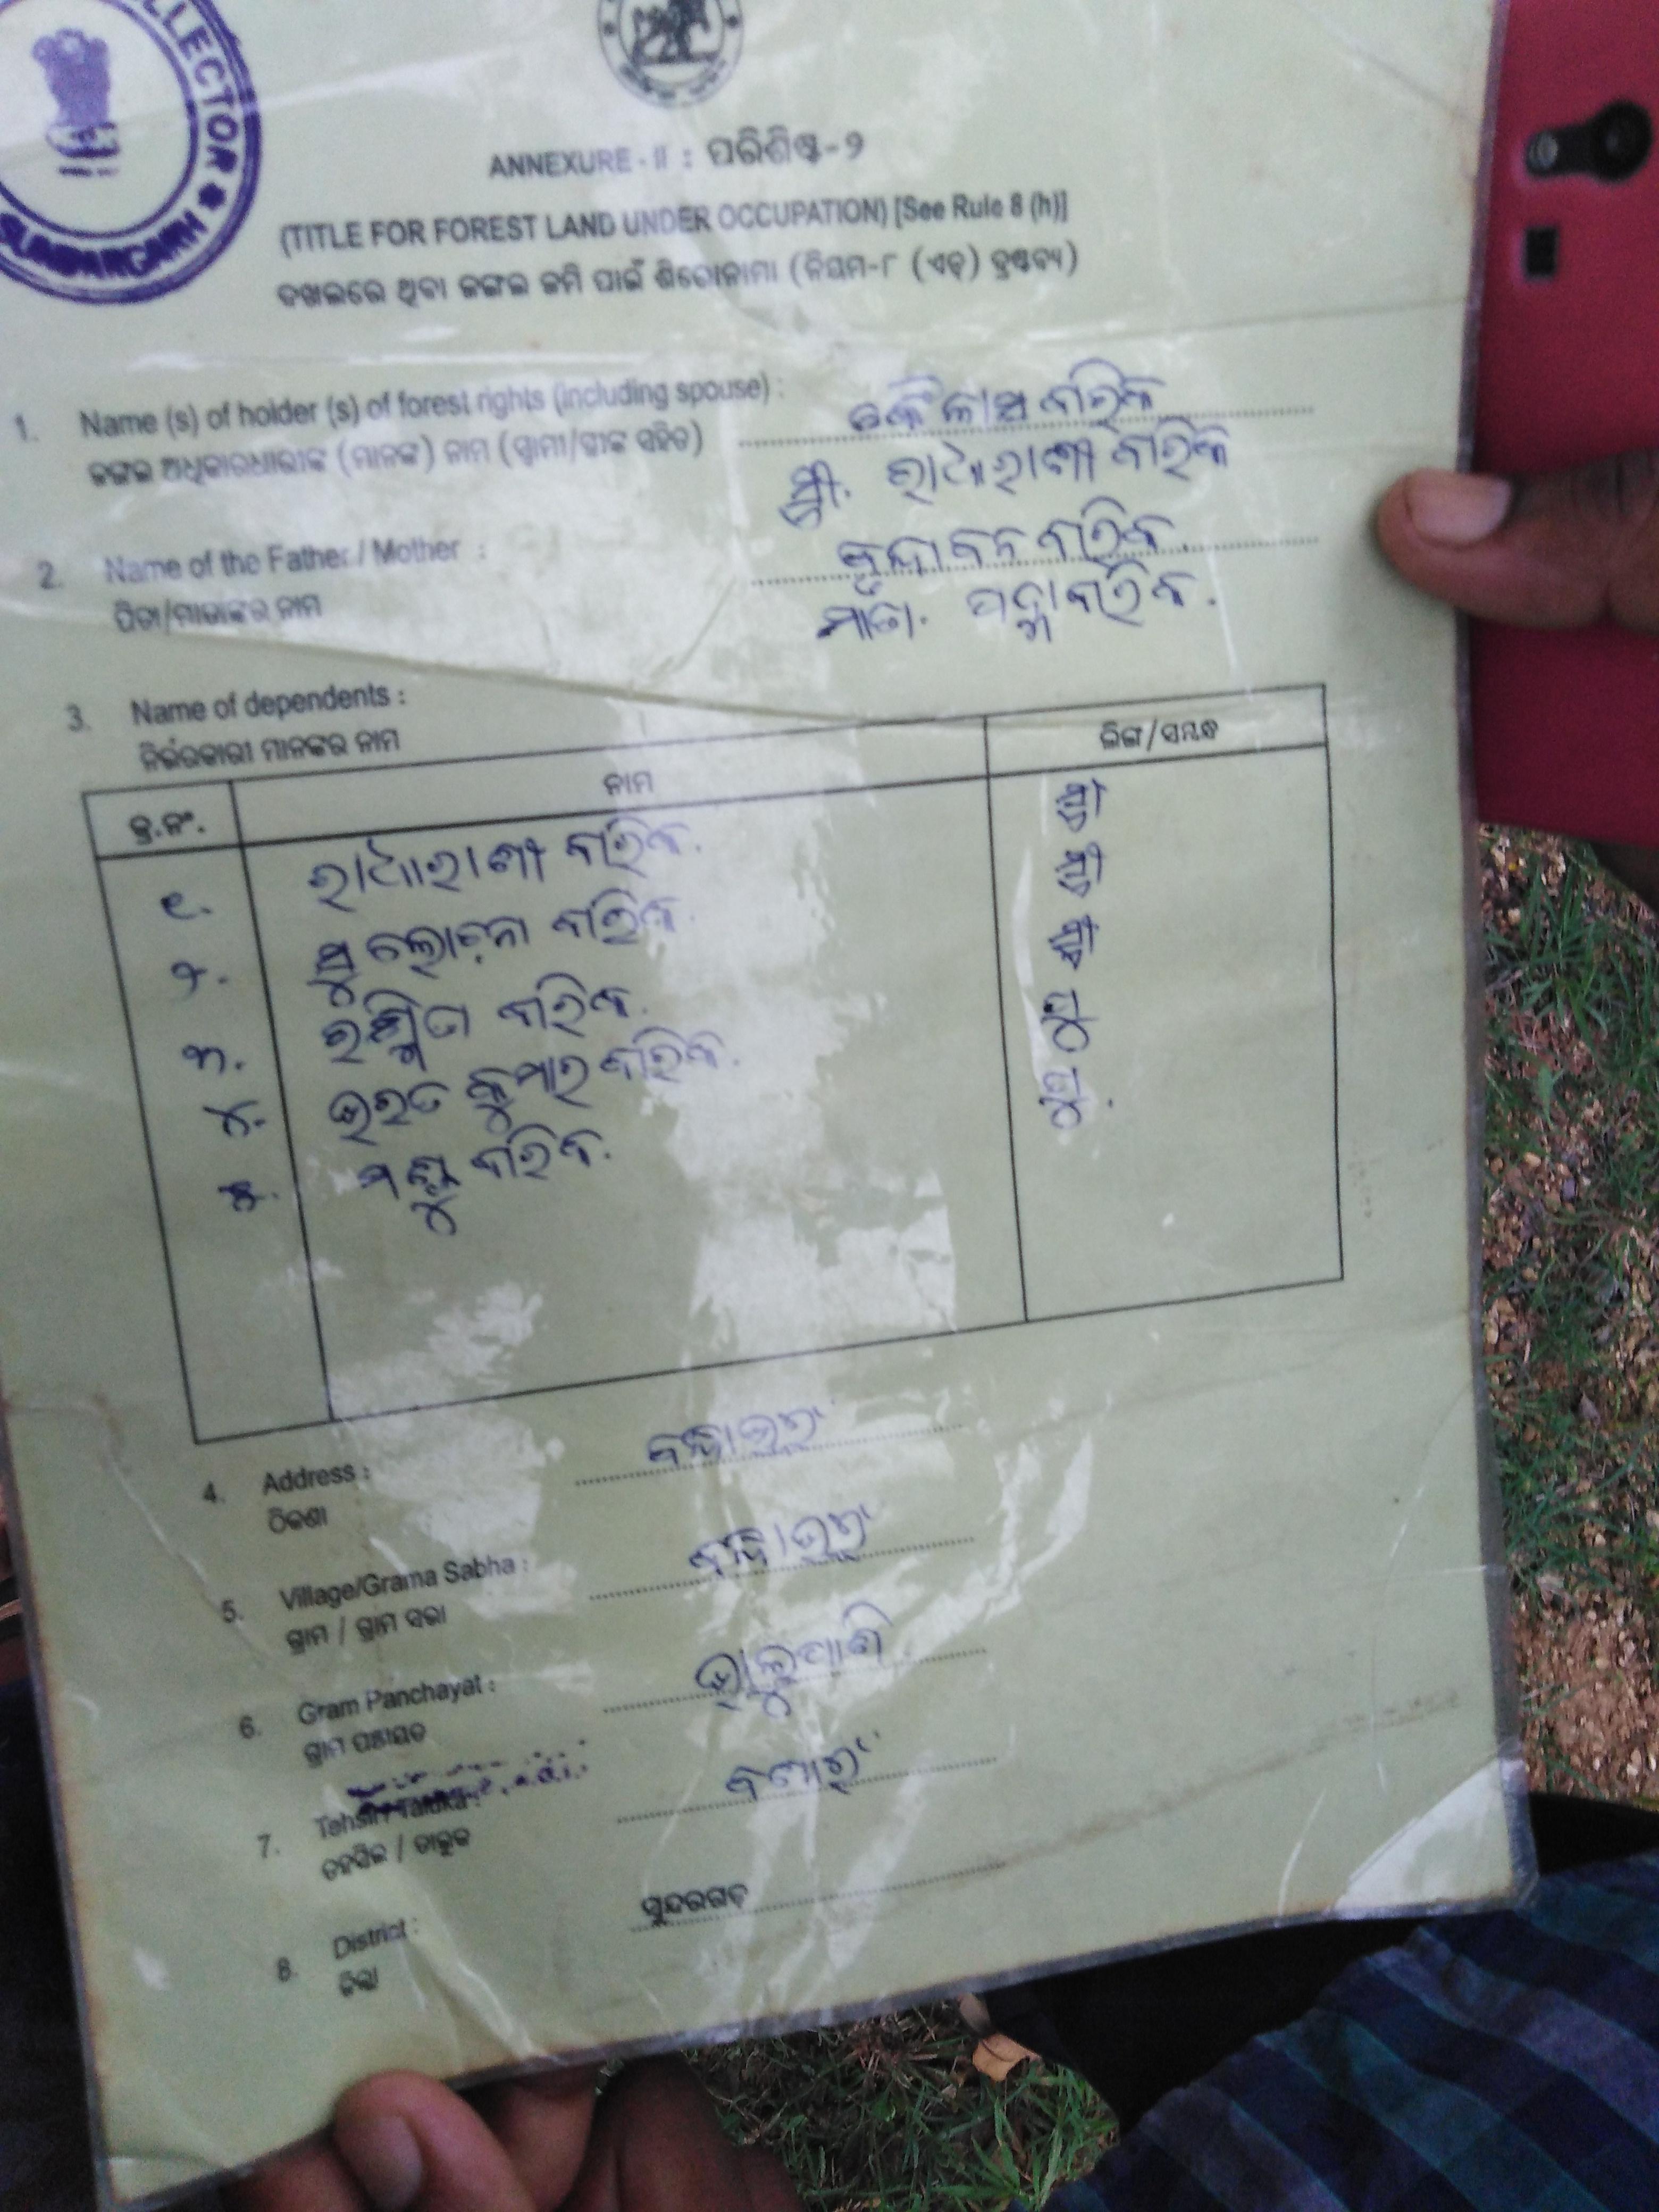 COLLECTOR
SUNDARGARH
ANNEXURE - II : ପରିଶିଷ୍ଟ-୨
(TITLE FOR FOREST LAND UNDER OCCUPATION) [See Rule 8 (h)]
ଦଖଲରେ ଥିବା ଜଙ୍ଗଲ ଜମି ପାଇଁ ଶିରୋନାମା (ନିୟମ-୮ (ଏଚ୍) ଦ୍ରଷ୍ଟବ୍ୟ)
1. Name (s) of holder (s) of forest rights (including spouse) : କୈଳାସ ବାରିକ
ଜଙ୍ଗଲ ଅଧିକାରଧାରୀଙ୍କ (ମାନଙ୍କ) ନାମ (ସ୍ୱାମୀ/ସ୍ତ୍ରୀଙ୍କ ସହିତ)
ସ୍ତ୍ରୀ. ରାଧାରାଣୀ ବାରିକ
2. Name of the Father / Mother : ବୃନ୍ଦାବନ ବାରିକ
ପିତା/ମାତାଙ୍କର ନାମ ମାତା. ପଦ୍ମା ବାରିକ.
3. Name of dependents :
ନିର୍ଭରକାରୀ ମାନଙ୍କର ନାମ
କ୍ର.ନଂ. ନାମ ଲିଙ୍ଗ/ସମ୍ବନ୍ଧ
୧. ରାଧାରାଣୀ ବାରିକ. ସ୍ତ୍ରୀ
୨. ସୁଲୋଚନା ବାରିକ. ସ୍ତ୍ରୀ
୩. ରଶ୍ମିତା ବାରିକ. ସ୍ତ୍ରୀ
୪. ଭରତ କୁମାର ବାରିକ. ପୁ
୫. ବାରିକ. ପୁ.
4. Address :
ଠିକଣା
5. Village/Grama Sabha :
ଗ୍ରାମ / ଗ୍ରାମ ସଭା
6. Gram Panchayat : ଭାଲୁପାଣି
ଗ୍ରାମ ପଞ୍ଚାୟତ
7. Tehsil / Taluka : ବଣାଇଁ
ତହସିଲ / ତାଲୁକ
8. District : ସୁନ୍ଦରଗଡ଼
ଜିଲ୍ଲା